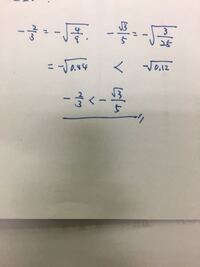 -2/3 = -√4/9. -√3/5 = -√3/25
= -√0.44 < -√0.12
-2/3 < -√3/5